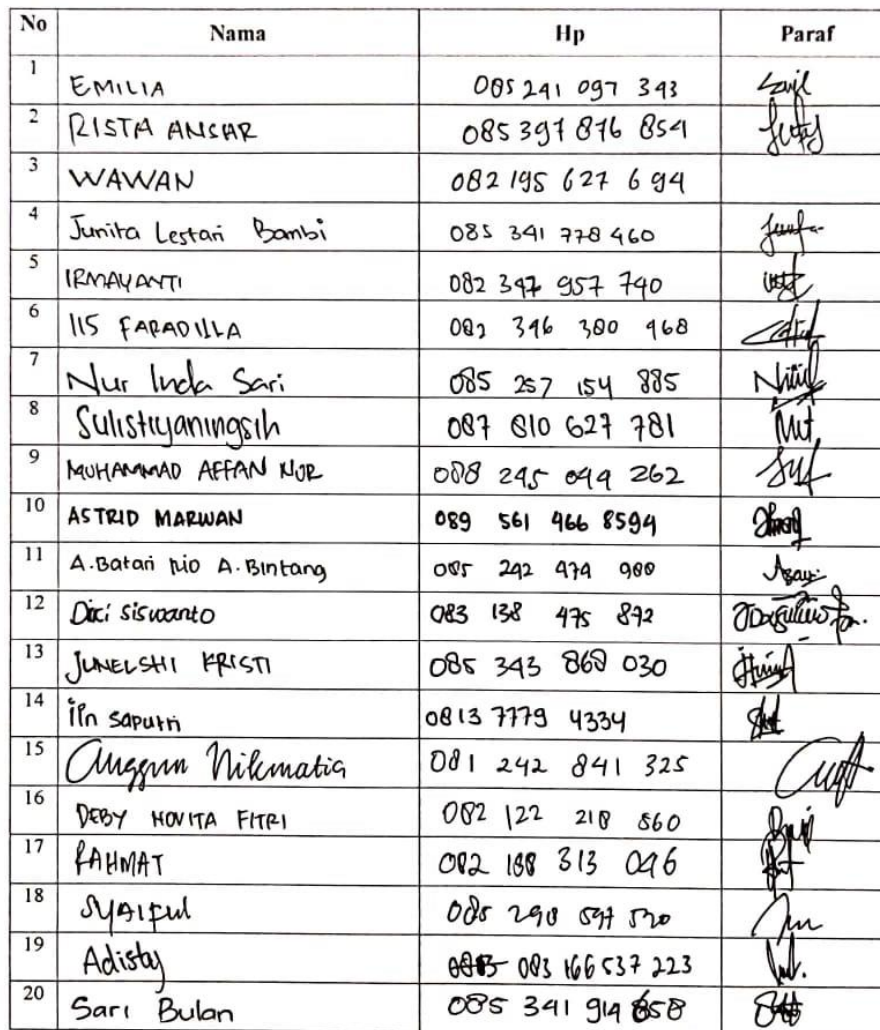 No Nama Hp Paraf
1 EMILIA 085 241 097 343
2 RISTA ANSAR 085 397 876 854
3 WAWAN 082 195 627 694
4 Junita Lestari Bambi 085 341 778 460
5 IRMAYANTI 082 347 957 740
6 IIS FARADILLA 082 346 380 468
7 Nur Inda Sari 085 257 154 885
8 Sulistiyaningsih 087 810 627 781
9 MUHAMMAD AFFAN NUR 088 245 044 262
10 ASTRID MARWAN 089 561 466 8594
11 A. Batari Rio A. Bintang 085 242 474 988
12 Dici siswanto 083 138 475 872
13 JUNELSHI KRISTI 085 343 868 030
14 iin saputri 0813 7779 4334
15 Anggun Nikmatia 081 242 841 325
16 DEBY NOVITA FITRI 082 122 218 560
17 RAHMAT 082 188 313 046
18 SYAIFUL 085 298 597 520
19 Adisty 083 166 537 223
20 Sari Bulan 085 341 914 658